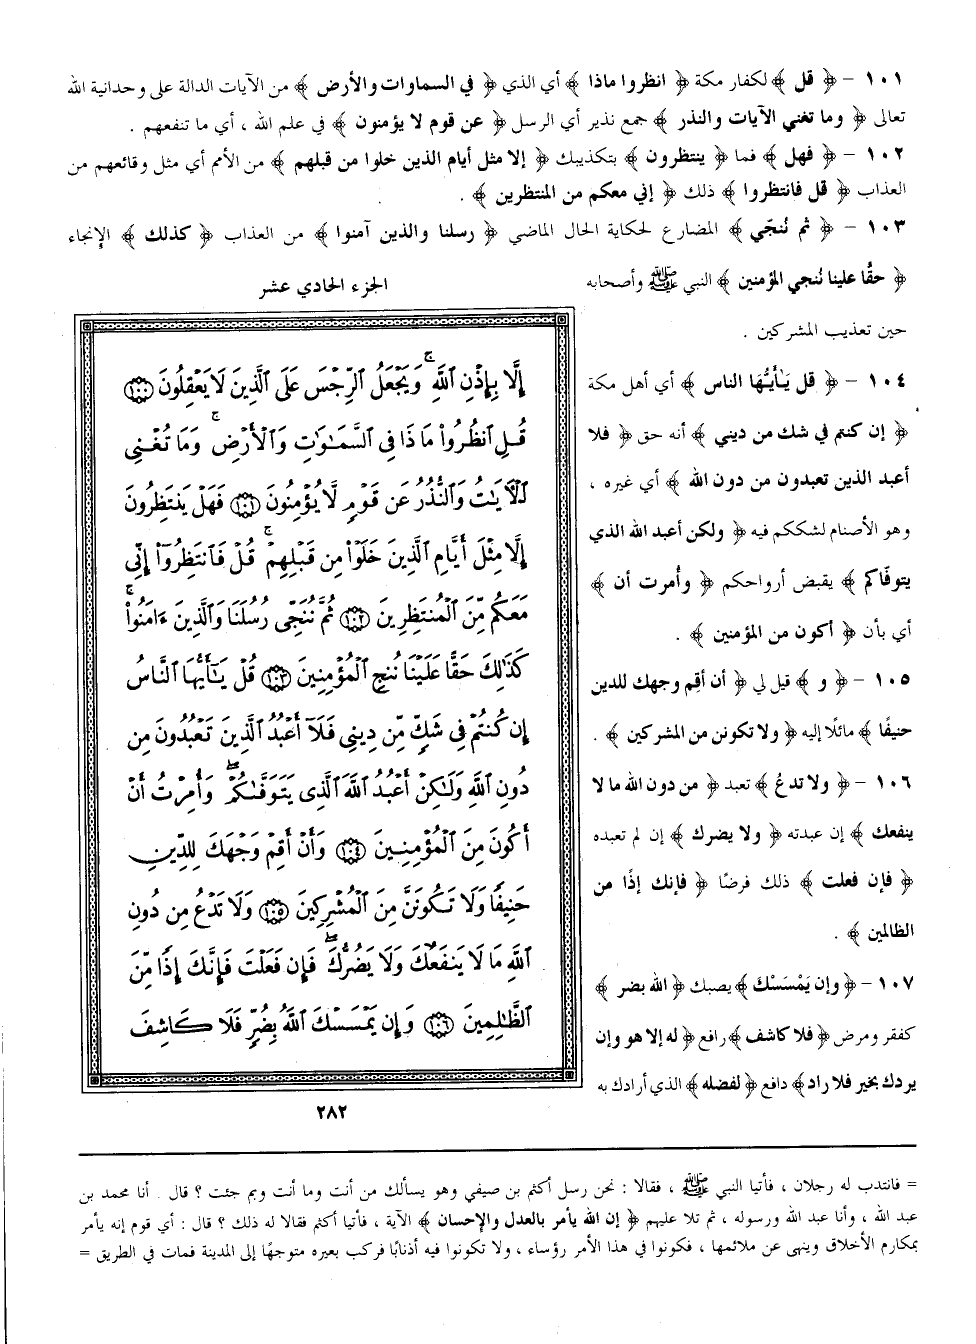 ١٠١ – ﴿ قل ﴾ لكفار مكة ﴿ انظروا ماذا ﴾ أي الذي ﴿ في السماوات والأرض ﴾ من الآيات الدالة على وحدانية الله
تعالى ﴿ وما تغني الآيات والنذر ﴾ جمع نذير أي الرسل ﴿ عن قوم لا يؤمنون ﴾ في علم الله ، أي ما تنفعهم .
١٠٢ – ﴿ فهل ﴾ فما ﴿ ينتظرون ﴾ بتكذيبك ﴿ إلا مثل أيام الذين خلوا من قبلهم ﴾ من الأمم أي مثل وقائعهم من
العذاب ﴿ قل فانتظروا ﴾ ذلك ﴿ إني معكم من المنتظرين ﴾ .
١٠٣ – ﴿ ثم نُنجّي ﴾ المضارع لحكاية الحال الماضي ﴿ رسلنا والذين آمنوا ﴾ من العذاب ﴿ كذلك ﴾ الإنجاء
﴿ حقًّا علينا نُنجي المؤمنين ﴾ النبي ﷺ وأصحابه
حين تعذيب المشركين .
١٠٤ – ﴿ قل يَٰأيُّهَا الناس ﴾ أي أهل مكة
﴿ إن كنتم في شك من ديني ﴾ أنه حق ﴿ فلا
أعبد الذين تعبدون من دون الله ﴾ أي غيره ،
وهو الأصنام لشككم فيه ﴿ ولكن أعبد الله الذي
يتوفّاكم ﴾ يقبض أرواحكم ﴿ وأمرت أن ﴾
أي بأن ﴿ أكون من المؤمنين ﴾ .
١٠٥ – ﴿ و ﴾ قيل لي ﴿ أن أقم وجهك للدين
حنيفًا ﴾ مائلًا إليه ﴿ ولا تكونن من المشركين ﴾ .
١٠٦ – ﴿ ولا تدعُ ﴾ تعبد ﴿ من دون الله ما لا
ينفعك ﴾ إن عبدته ﴿ ولا يضرك ﴾ إن لم تعبده
﴿ فإن فعلت ﴾ ذلك فرضًا ﴿ فإنك إذًا من
الظالمين ﴾ .
١٠٧ – ﴿ وإن يَمْسَسْك ﴾ يصبك ﴿ الله بضر ﴾
كفقر ومرض ﴿ فلا كاشف ﴾ رافع ﴿ له إلا هو وإن
يردك بخير فلا راد ﴾ دافع ﴿ لفضله ﴾ الذي أرادك به
الجزء الحادي عشر
إِلَّا بِإِذْنِ ٱللَّهِ ۚ وَيَجْعَلُ ٱلرِّجْسَ عَلَى ٱلَّذِينَ لَا يَعْقِلُونَ ۝١٠٠
قُلِ ٱنظُرُوا۟ مَاذَا فِى ٱلسَّمَٰوَٰتِ وَٱلْأَرْضِ ۚ وَمَا تُغْنِى
ٱلْءَايَٰتُ وَٱلنُّذُرُ عَن قَوْمٍ لَّا يُؤْمِنُونَ ۝١٠١ فَهَلْ يَنتَظِرُونَ
إِلَّا مِثْلَ أَيَّامِ ٱلَّذِينَ خَلَوْا۟ مِن قَبْلِهِمْ ۚ قُلْ فَٱنتَظِرُوٓا۟ إِنِّى
مَعَكُم مِّنَ ٱلْمُنتَظِرِينَ ۝١٠٢ ثُمَّ نُنَجِّى رُسُلَنَا وَٱلَّذِينَ ءَامَنُوا۟ ۚ
كَذَٰلِكَ حَقًّا عَلَيْنَا نُنجِ ٱلْمُؤْمِنِينَ ۝١٠٣ قُلْ يَٰٓأَيُّهَا ٱلنَّاسُ
إِن كُنتُمْ فِى شَكٍّ مِّن دِينِى فَلَآ أَعْبُدُ ٱلَّذِينَ تَعْبُدُونَ مِن
دُونِ ٱللَّهِ وَلَٰكِنْ أَعْبُدُ ٱللَّهَ ٱلَّذِى يَتَوَفَّىٰكُمْ ۖ وَأُمِرْتُ أَنْ
أَكُونَ مِنَ ٱلْمُؤْمِنِينَ ۝١٠٤ وَأَنْ أَقِمْ وَجْهَكَ لِلدِّينِ
حَنِيفًا وَلَا تَكُونَنَّ مِنَ ٱلْمُشْرِكِينَ ۝١٠٥ وَلَا تَدْعُ مِن دُونِ
ٱللَّهِ مَا لَا يَنفَعُكَ وَلَا يَضُرُّكَ ۖ فَإِن فَعَلْتَ فَإِنَّكَ إِذًا مِّنَ
ٱلظَّٰلِمِينَ ۝١٠٦ وَإِن يَمْسَسْكَ ٱللَّهُ بِضُرٍّ فَلَا كَاشِفَ
٢٨٢
= فانتدب له رجلان ، فأتيا النبي ﷺ ، فقالا : نحن رسل أكثم بن صيفي وهو يسألك من أنت وما أنت وبم جئت ؟ قال . أنا محمد بن
عبد الله ، وأنا عبد الله ورسوله ، ثم تلا عليهم ﴿ إن الله يأمر بالعدل والإحسان ﴾ الآية ، فأتيا أكثم فقالا له ذلك ؟ قال : أي قوم إنه يأمر
بمكارم الأخلاق وينهى عن ملائمها ، فكونوا في هذا الأمر رؤساء ، ولا تكونوا فيه أذنابًا فركب بعيره متوجهًا إلى المدينة فمات في الطريق =